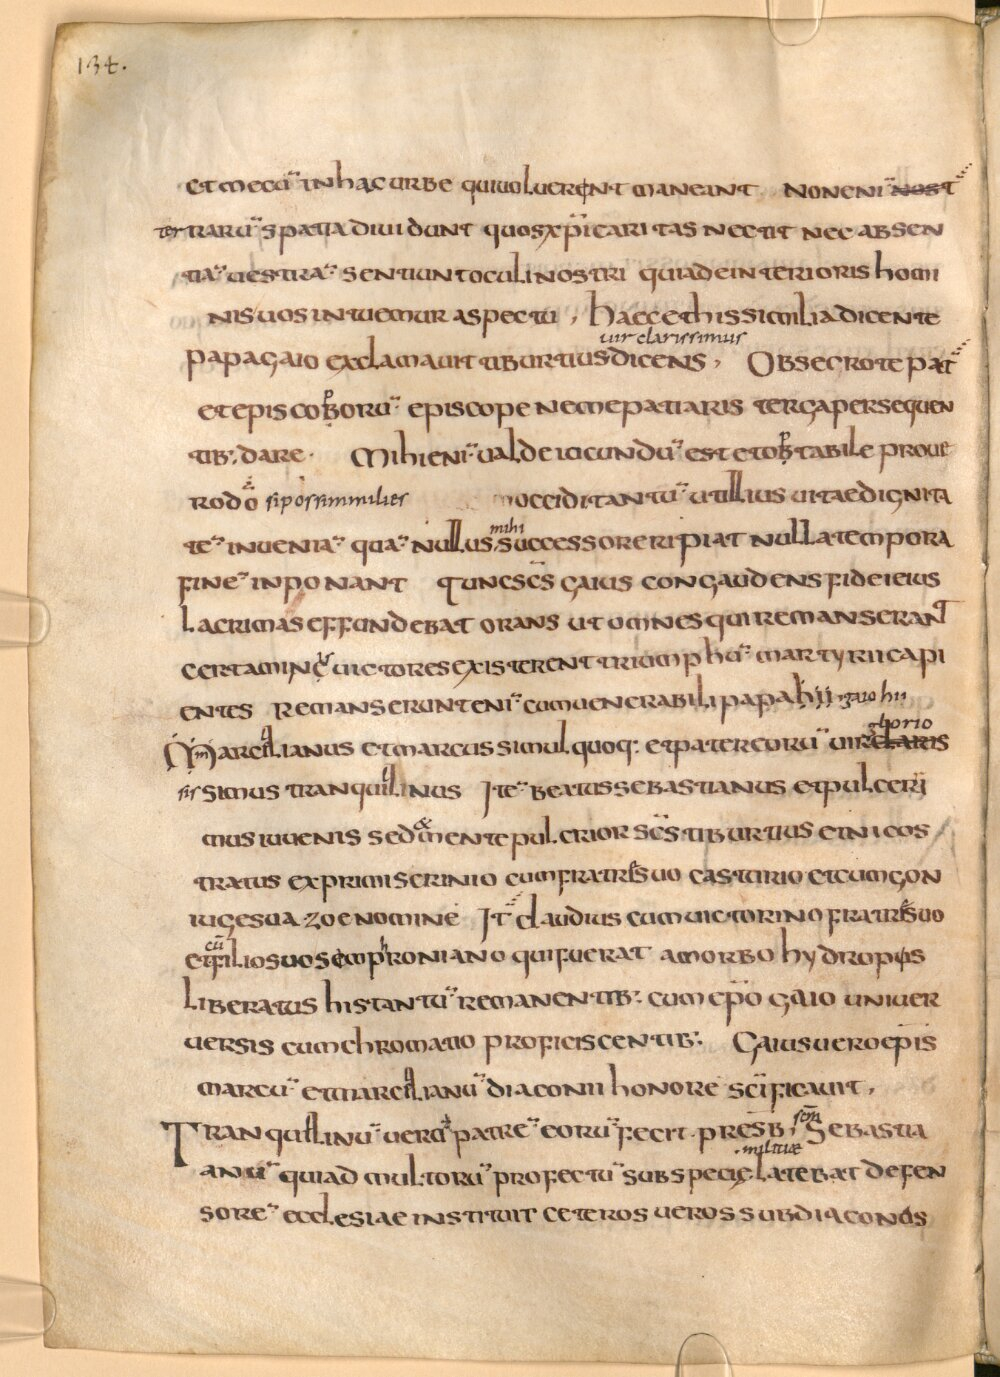 134.
et mecū in hac urbe qui uoluerent maneant non enī nost̄
terrarū spatia diuidunt quos xp̄i caritas nectit nec absen
tiā uestrā sentiunt oculi nostri quia de interioris homi
nis uos intuemur aspectu, haec et his similia dicente
uir clarissimus
papa gaio exclamauit tiburtius dicens, Obsecro te pat̄
et episcoporū episcope ne me patiaris terga persequen
tib: dare. Mihi enī ualde iucundū est et obtabile pro ue
ro dō si possim milies occidi tantū ut illius uitae dignita
mihi
tē inueniā quā nullus successor eripiat nulla tempora
finē inponant Tunc scs̄ gaius congaudens fidei eius
lacrimas effundebat orans ut omnes qui remanserant
certaminis uictores existerent triumphū martyrii capi
entes Remanserunt enī cum uenerabili papa hii gaio hii
glorio
Marcillianus et marcus simul quoq: et pater eorū uir claris
sis simus tranquillinus Itē beatus sebastianus et pulceri
mus iuuenis sed et mente pulcrior scs̄ tiburtius et nicos
tratus ex primiscrinio cum fratre suo casturio et cum con
iuge sua zoe nomine It̄ claudius cum uictorino fratre suo
cū
et filio suo semphroniano qui fuerat a morbo hydropis
liberatus his tantū remanentib: cum ep̄o gaio uniuer
uersis cum chromatio proficiscentib: Gaius uero epīs
marcū et marcillianū diaconii honore scīficauit,
Tranquillinū uero patrē eorū fecit presb, scm̄ Sebastia
militiae
anū quia ad multorū profectū sub specie latebat defen
sorē ecclesiae instituit ceteros ueros subdiaconos